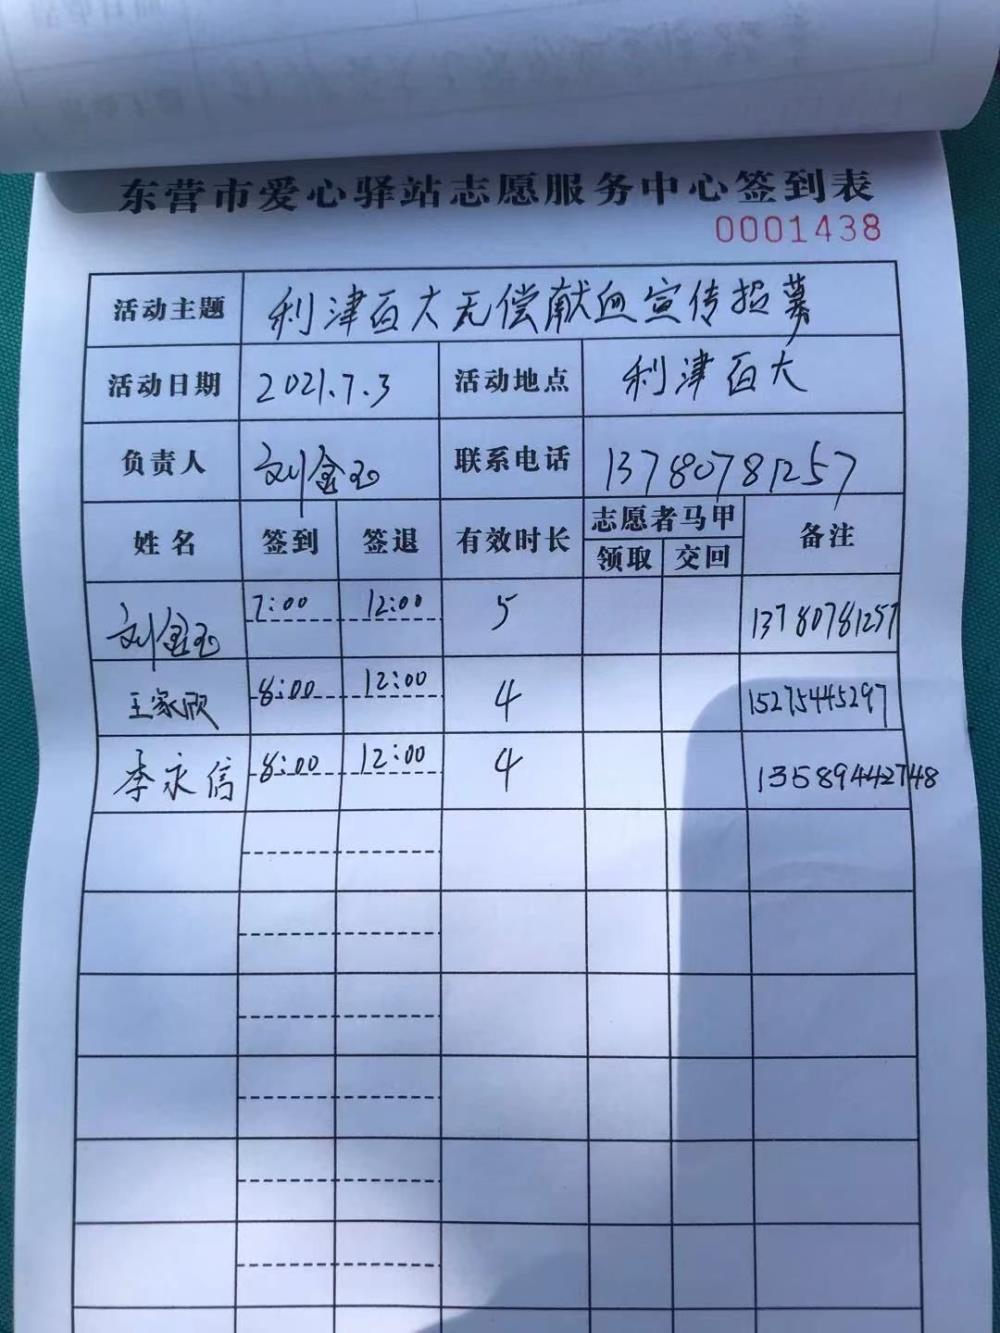 东营市爱心驿站志愿服务中心签到表
0001438
活动主题 利津百大无偿献血宣传招募
活动日期 2021.7.3 活动地点 利津百大
负责人 刘金玉 联系电话 13780781257
姓名 签到 签退 有效时长 志愿者马甲 备注
领取 交回
刘金玉 7:00 12:00 5 13780781257
王家欣 8:00 12:00 4 15275445297
李永信 8:00 12:00 4 13589442748